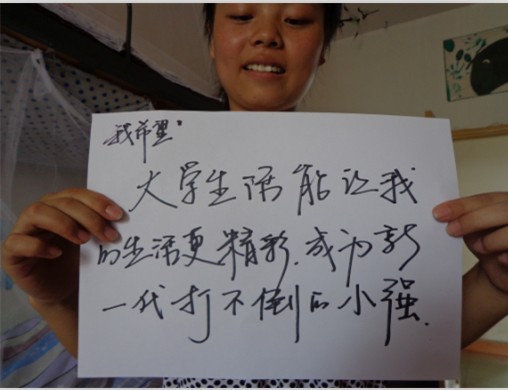 我希望:
大学生活能让我
的生活更精彩.成为新
一代打不倒的小强.